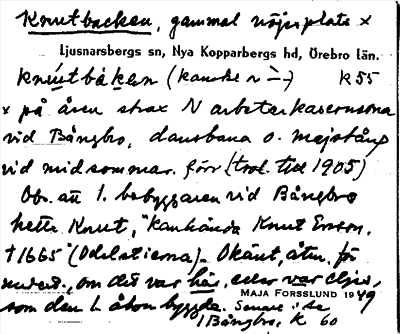 Knutbacken, gammal nöjesplats x
Ljusnarsbergs sn, Nya Kopparbergs hd, Örebro län.
knùtbàkan (kanske n -) K 55
x på åsen strax N arbetarkasernerna
vid Bångbro, dansbana o. majstång
vid midsommar. förr (trol. till 1905)
Obs. att 1. bebyggaren vid Bångbro
hette Knut, "kanhända Knut Ersson,
†1665" (Odelstierna). Okänt, åtm. för
, om det var här, eller var eljes,
som den 1. åbon byggde. Senare i
MAJA FORSSLUND 1949
Bångbro. K 60